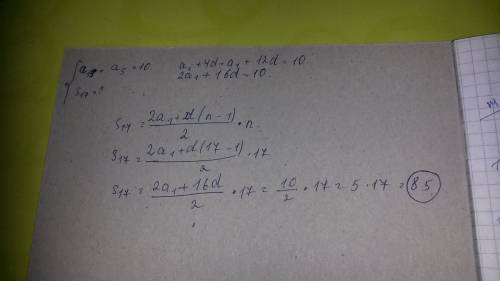 a₅ = 10. a₁ + 4d - a₁ + 12d = 10.
S₁₇ = ? 2a₁ + 16d = 10.
S₁₇ = (2a₁ + d(n-1))/2 · n.
S₁₇ = (2a₁ + d(17-1))/2 · 17
S₁₇ = (2a₁ + 16d)/2 · 17 = 10/2 · 17 = 5 · 17 = 85